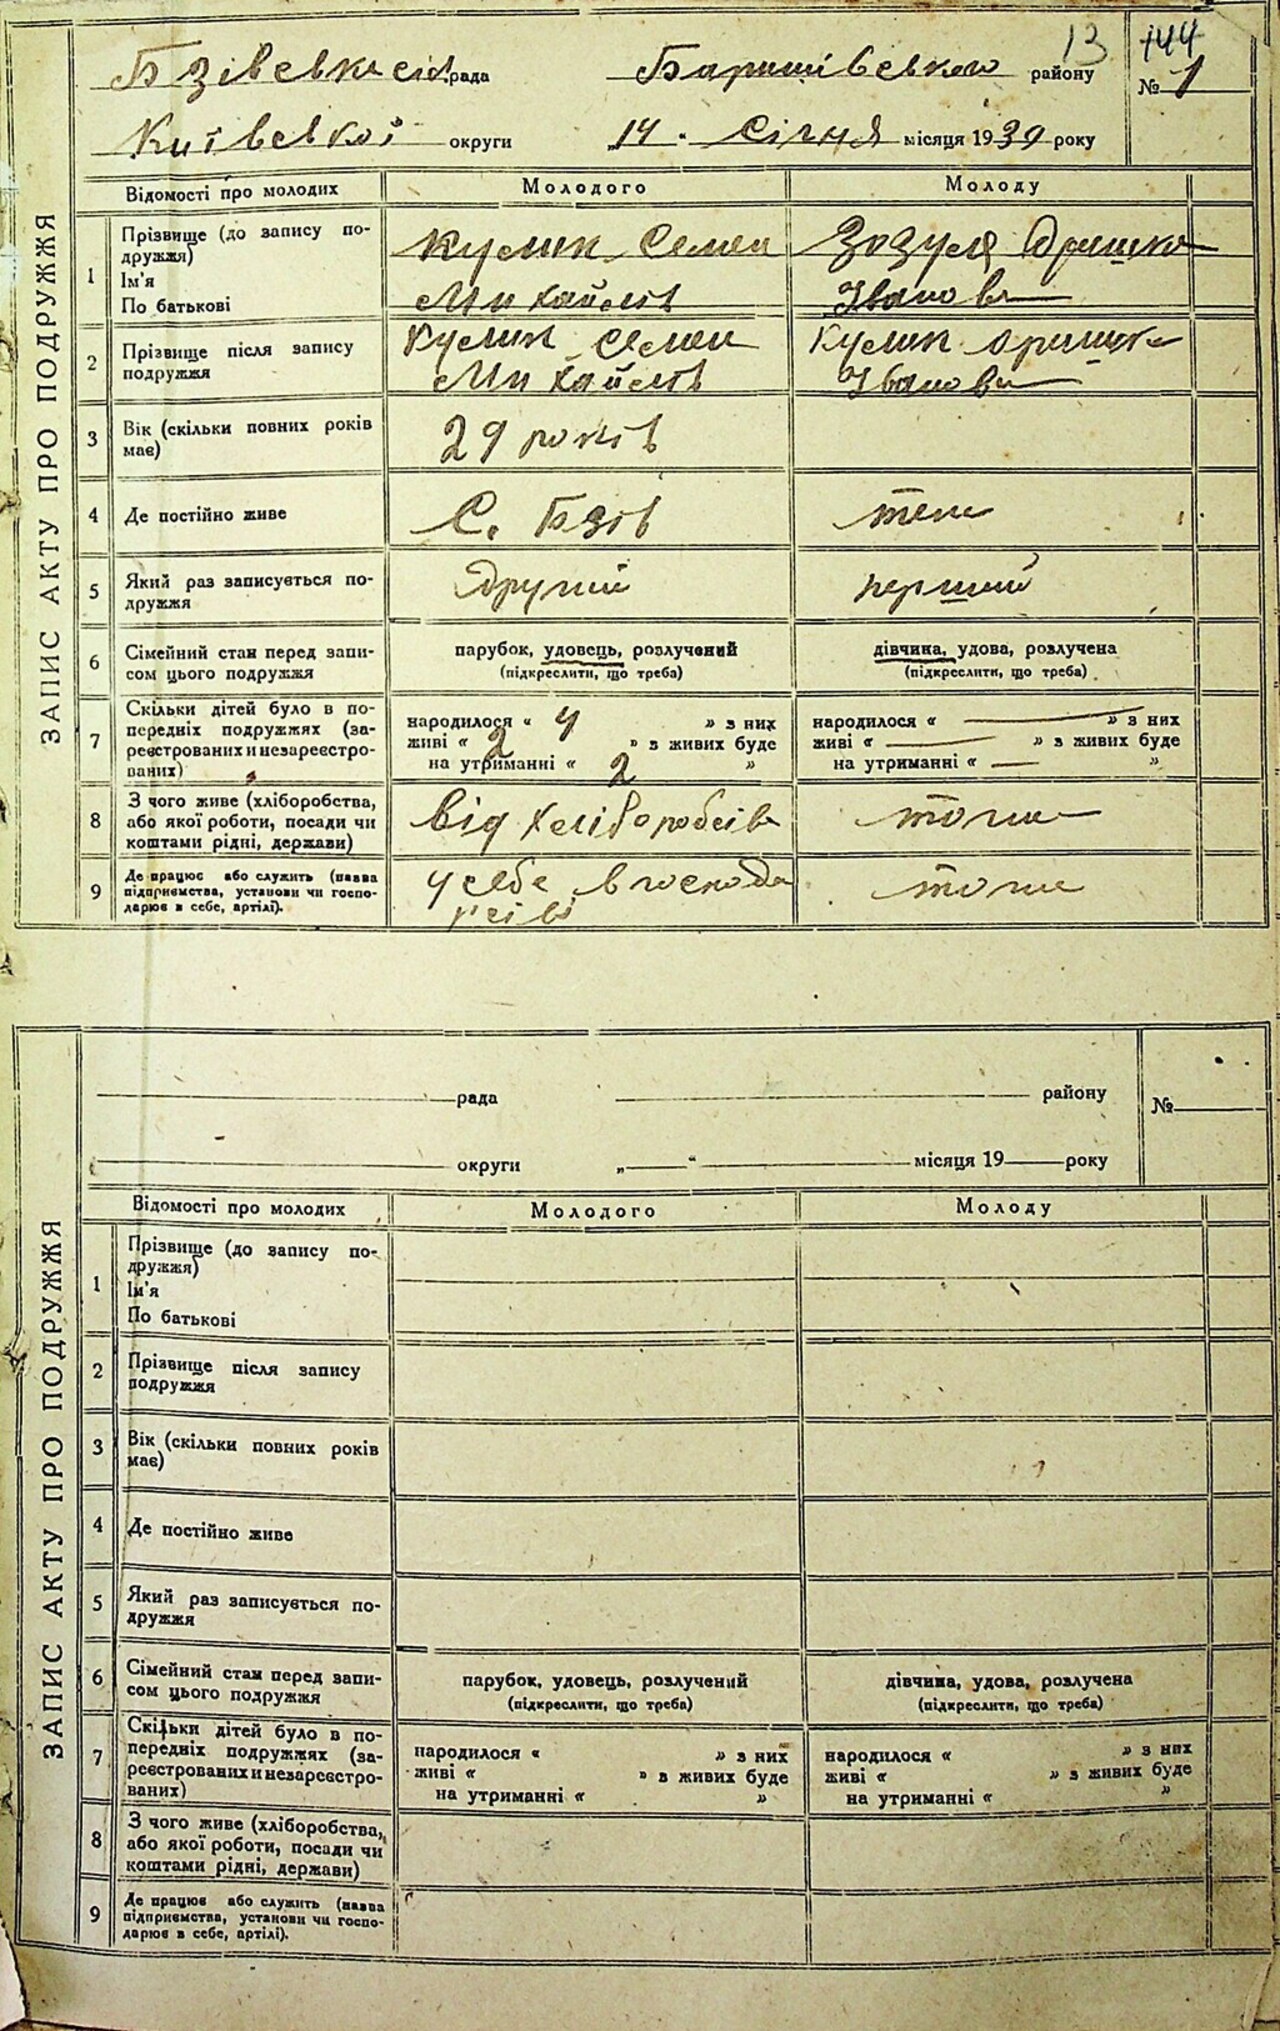 13
144
Бзівська сіл. рада Баришівського району № 1
Київської округи „14" Січня місяця 1930 року
ЗАПИС АКТУ ПРО ПОДРУЖЖЯ
Відомості про молодих Молодого Молоду
1 Прізвище (до запису по-
дружжя)
Ім'я
По батькові
Кулик Семен
Михайлів
Зозуля Оришка
Іванова
2 Прізвище після запису
подружжя
Кулик Семен
Михайлів
Кулик Оришка
Іванова
3 Вік (скільки повних років
має)
29 років
4 Де постійно живе С. Бзів теж
5 Який раз записується по-
дружжя
другий перший
6 Сімейний стан перед запи-
сом цього подружжя
парубок, удовець, розлучений
(підкреслити, що треба)
дівчина, удова, розлучена
(підкреслити, що треба)
7 Скільки дітей було в по-
передніх подружжях (за-
реєстрованих и незареєстро-
ваних)
народилося « 4 » з них
живі « 2 » в живих буде
на утриманні « 2 »
народилося « — » з них
живі « — » з живих буде
на утриманні « — »
8 З чого живе (хліборобства,
або якої роботи, посади чи
коштами рідні, держави)
від хліборобсів
тоже
9 Де працює або служить (назва
підприємства, установи чи госпо-
дарює в себе, артілі).
у себе в господа
рсіві
тоже
ЗАПИС АКТУ ПРО ПОДРУЖЖЯ
рада району №
округи „ " місяця 19 року
Відомості про молодих Молодого Молоду
1 Прізвище (до запису по-
дружжя)
Ім'я
По батькові
2 Прізвище після запису
подружжя
3 Вік (скільки повних років
має)
4 Де постійно живе
5 Який раз записується по-
дружжя
6 Сімейний стан перед запи-
сом цього подружжя
парубок, удовець, розлучений
(підкреслити, що треба)
дівчина, удова, розлучена
(підкреслити, що треба)
7 Скільки дітей було в по-
передніх подружжях (за-
реєстрованих и незареєстро-
ваних)
народилося « » з них
живі « » в живих буде
на утриманні « »
народилося « » з них
живі « » з живих буде
на утриманні « »
8 З чого живе (хліборобства,
або якої роботи, посади чи
коштами рідні, держави)
9 Де працює або служить (назва
підприємства, установи чи госпо-
дарює в себе, артілі).